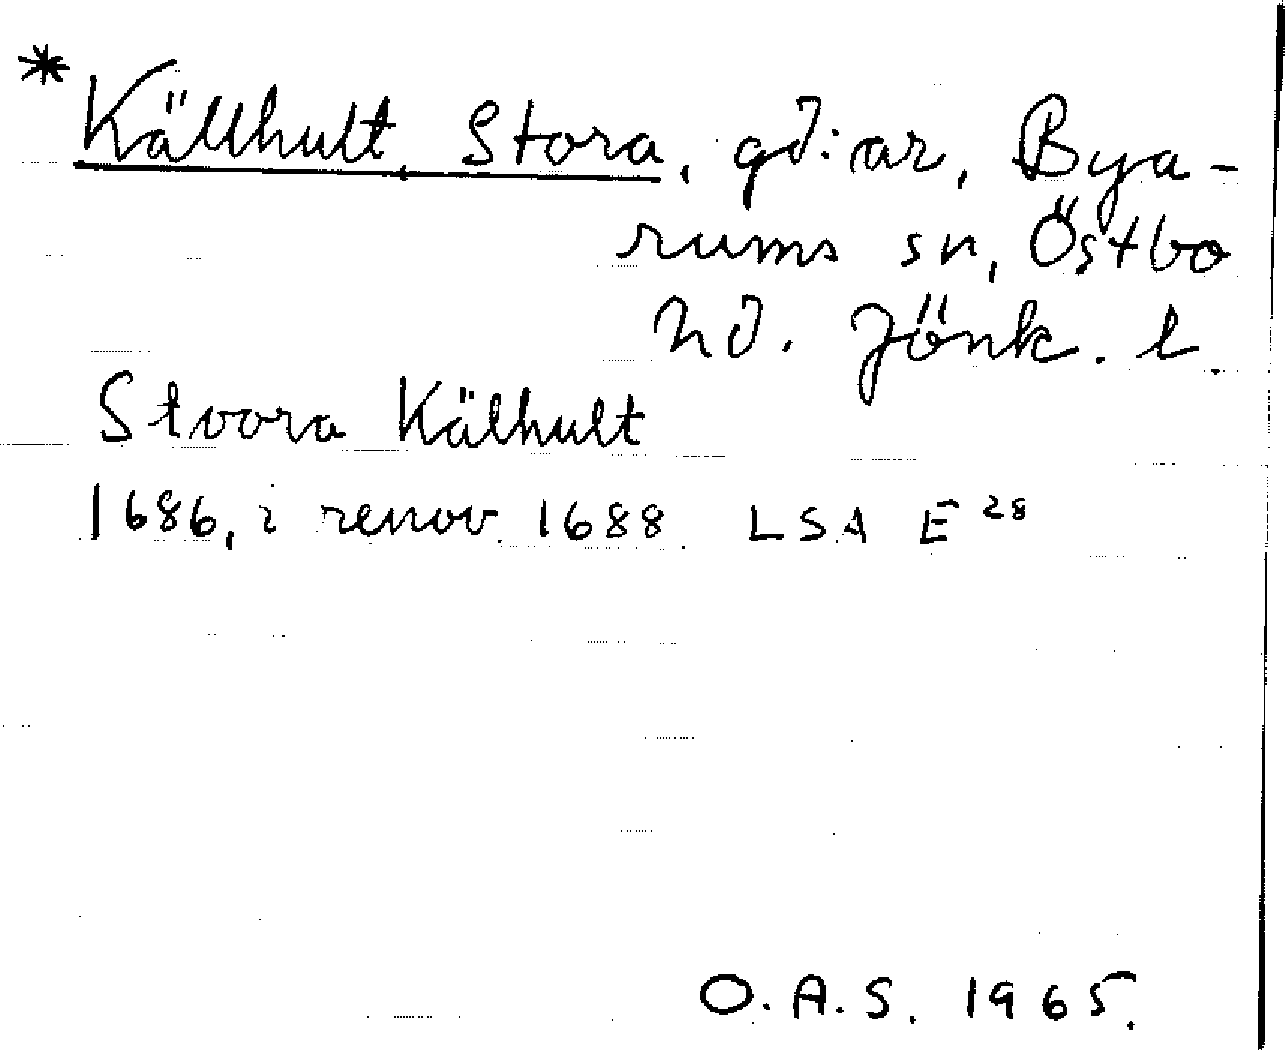 * Källhult, Stora, gd:ar, Bya-
rums sn, Östbo
hd. Jönk. l.
Stoora Kälhult
1686, i renov. 1688 LSA E 28
O.A.S. 1965.